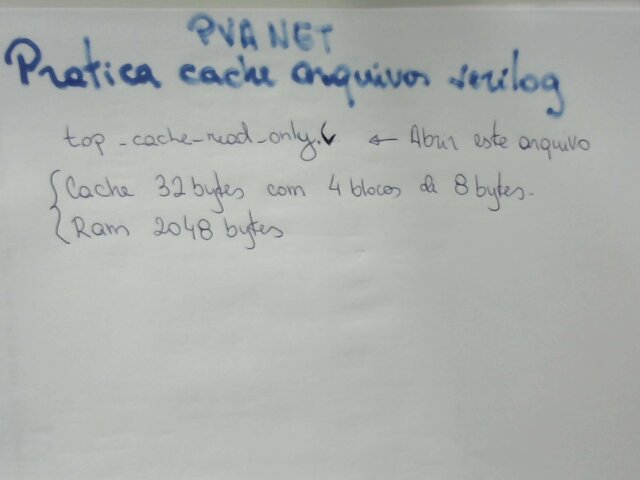 PVANET
Pratica cache arquivos verilog
top_cache_read_only.v ← Abrir este arquivo
Cache 32 bytes com 4 blocos de 8 bytes.
Ram 2048 bytes